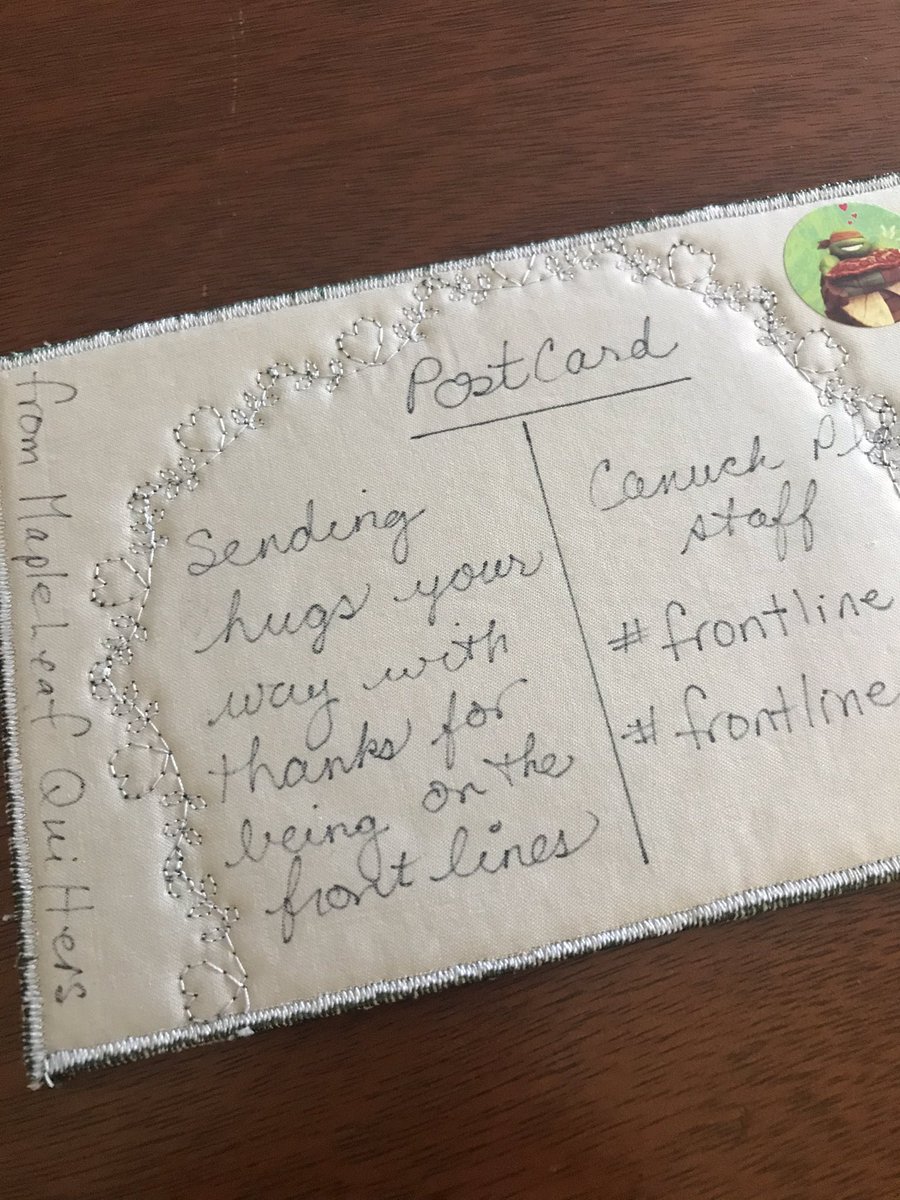 PostCard
Sending
hugs your
way with
thanks for
being on the
front lines
Canuck
staff
#frontline
#frontline
from MapleLeaf Quilters